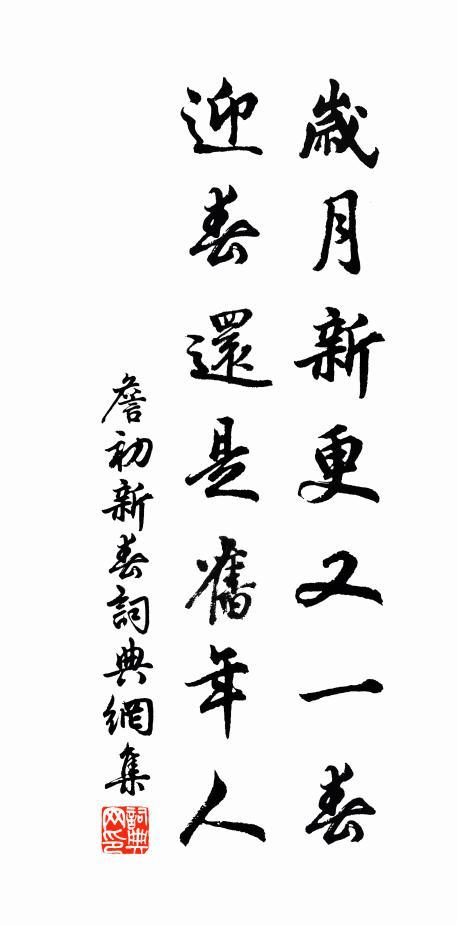 歲月新更又一春
迎春還是舊年人
詹初新春詞典網集
詞典网印